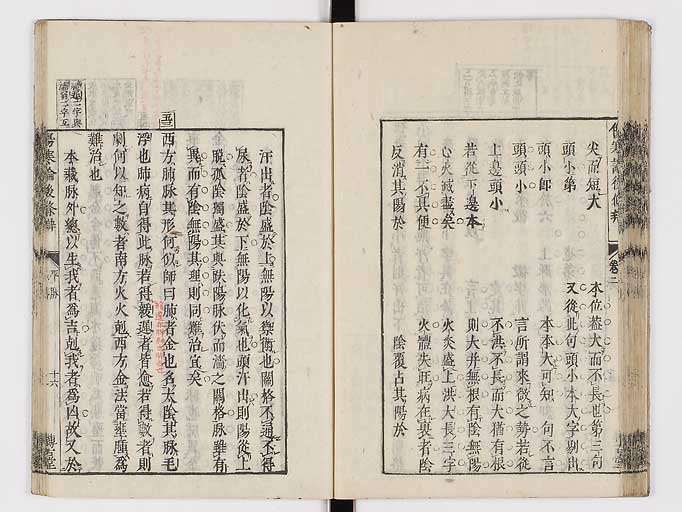 尖而短大　本位蓋大而不長也第三句
頭小第　又從此句頭小本大字剔出
頭小卽於六　本本大可知一句不言
頭頭小　言所謂來微之勢若從
上邊頭小　不洪不長而大猶有根
若從下邊本　則大幷無根有陰無陽
心火滅盡矣　火炎盛上洪大長三字
有一不具便　火體失旺病在裏者陰
反消其陽於　陰覆占其陽於
汗出者陰盛於上無陽以衛也關格不通不得
尿者陰盛於下無陽以化氣也頭汗出則陽從上
脫孤陰獨盛其與趺陽脉伏而濇之關格脉雖有
異而有陰無陽其理則同難治宜矣
西方肺脉其形何似師曰肺者金也名太陰其脉毛
浮也肺病自得此脉若得緩遲者皆愈若得數者則
劇何以知之數者南方火火剋西方金法當壅腫爲
難治也
本藏脉外總以生我者爲吉剋我者爲凶故又於
傷寒論後條辨　平脉　十六